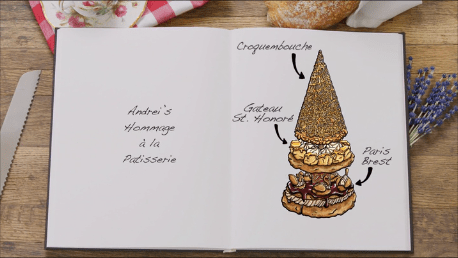 Andrei's
Hommage
à la
Patisserie
Croquembouche
Gateau
St. Honoré
Paris
Brest